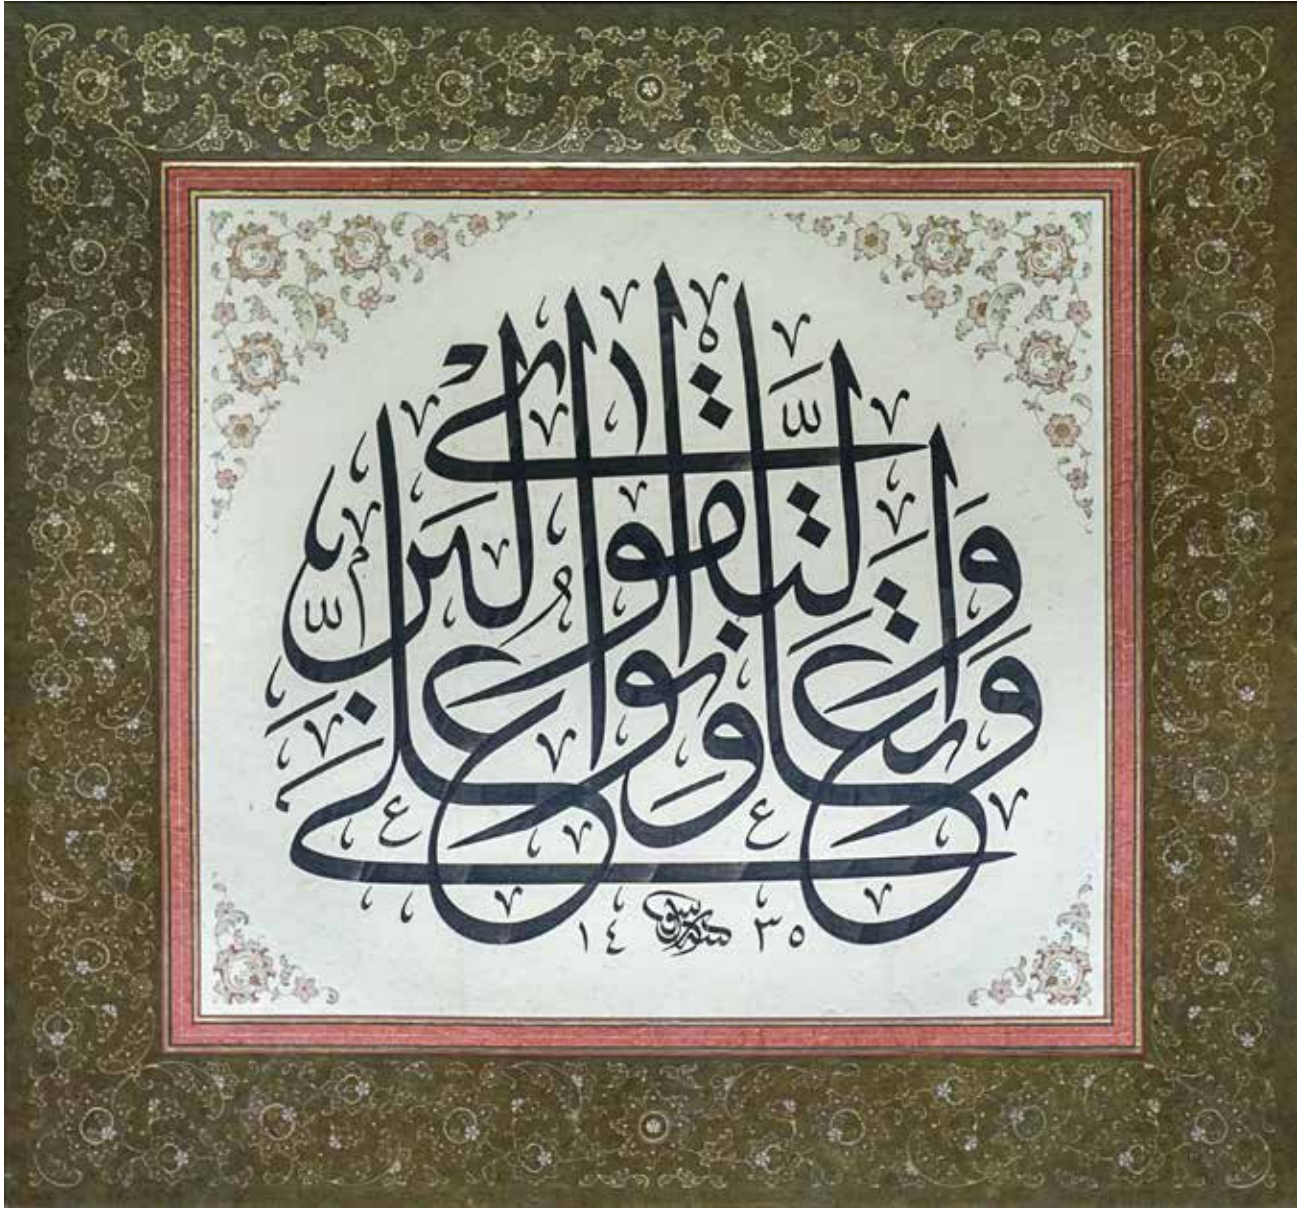 وَتَعَاوَنُوا عَلَى الْبِرِّ وَالتَّقْوَى
١٤٣٥